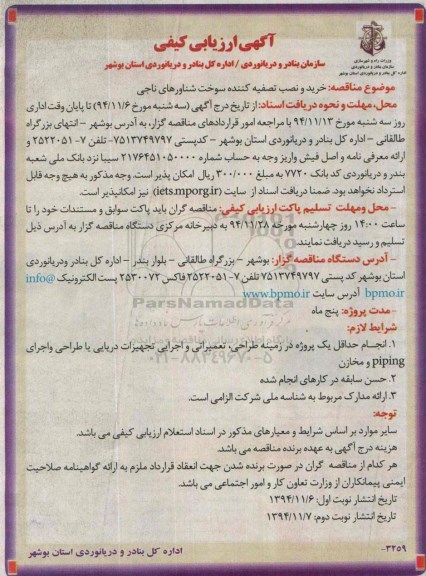 آگهی ارزیابی کیفی
سازمان بنادر و دریانوردی / اداره کل بنادر و دریانوردی استان بوشهر
وزارت راه و شهرسازی
سازمان بنادر و دریانوردی
اداره کل بنادر و دریانوردی استان بوشهر
موضوع مناقصه: خرید و نصب تصفیه کننده سوخت شناورهای ناجی
محل، مهلت و نحوه دریافت اسناد: از تاریخ درج آگهی (سه شنبه مورخ ۹۴/۱۱/۶) تا پایان وقت اداری
روز سه شنبه مورخ ۹۴/۱۱/۱۳ با مراجعه امور قراردادهای مناقصه گزار، به آدرس بوشهر - انتهای بزرگراه
طالقانی - اداره کل بنادر و دریانوردی استان بوشهر - کدپستی ۷۵۱۳۷۴۹۷۹۷- تلفن ۷-۲۵۲۲۰۵۱ و
ارائه معرفی نامه و اصل فیش واریز وجه به حساب شماره ۲۱۷۶۴۵۱۰۵۰۰۰۰ سیبا نزد بانک ملی شعبه
بندر و دریانوردی کد بانک ۷۷۲۰ به مبلغ ۳۰۰/۰۰۰ ریال امکان پذیر است. وجه مذکور به هیچ وجه قابل
استرداد نخواهد بود. ضمنا دریافت اسناد از سایت (iets.mporg.ir) نیز امکانپذیر است.
- محل ومهلت تسلیم پاکت ارزیابی کیفی: مناقصه گران باید پاکت سوابق و مستندات خود را تا
ساعت ۱۴:۰۰ روز چهارشنبه مورخه ۹۴/۱۱/۲۸ به دبیرخانه مرکزی دستگاه مناقصه گزار به آدرس ذیل
تسلیم و رسید دریافت نمایند.
- آدرس دستگاه مناقصه گزار: بوشهر - بزرگراه طالقانی - بلوار بندر - اداره کل بنادر ودریانوردی
استان بوشهر کد پستی ۷۵۱۳۷۴۹۷۹۷ تلفن ۷-۲۵۲۲۰۵۱ فاکس ۲۵۳۰۰۷۲ پست الکترونیک info@
bpmo.ir آدرس سایت www.bpmo.ir
- مدت پروژه: پنج ماه
شرایط لازم:
۱. انجام حداقل یک پروژه در زمینه طراحی، تعمیراتی و اجرایی تجهیزات دریایی یا طراحی واجرای
piping و مخازن
۲. حسن سابقه در کارهای انجام شده
۳. ارائه مدارک مربوط به شناسه ملی شرکت الزامی است.
توجه:
سایر موارد بر اساس شرایط و معیارهای مذکور در اسناد استعلام ارزیابی کیفی می باشد.
هزینه درج آگهی به عهده برنده مناقصه می باشد.
هر کدام از مناقصه گران در صورت برنده شدن جهت انعقاد قرارداد ملزم به ارائه گواهینامه صلاحیت
ایمنی پیمانکاران از وزارت تعاون کار و امور اجتماعی می باشد.
تاریخ انتشار نوبت اول: ۱۳۹۴/۱۱/۶
تاریخ انتشار نوبت دوم: ۱۳۹۴/۱۱/۷
۳۲۵۹-
اداره کل بنادر و دریانوردی استان بوشهر
ParsNamadData
۰۲۱-۸۸۳۴۹۶۷۰-۵